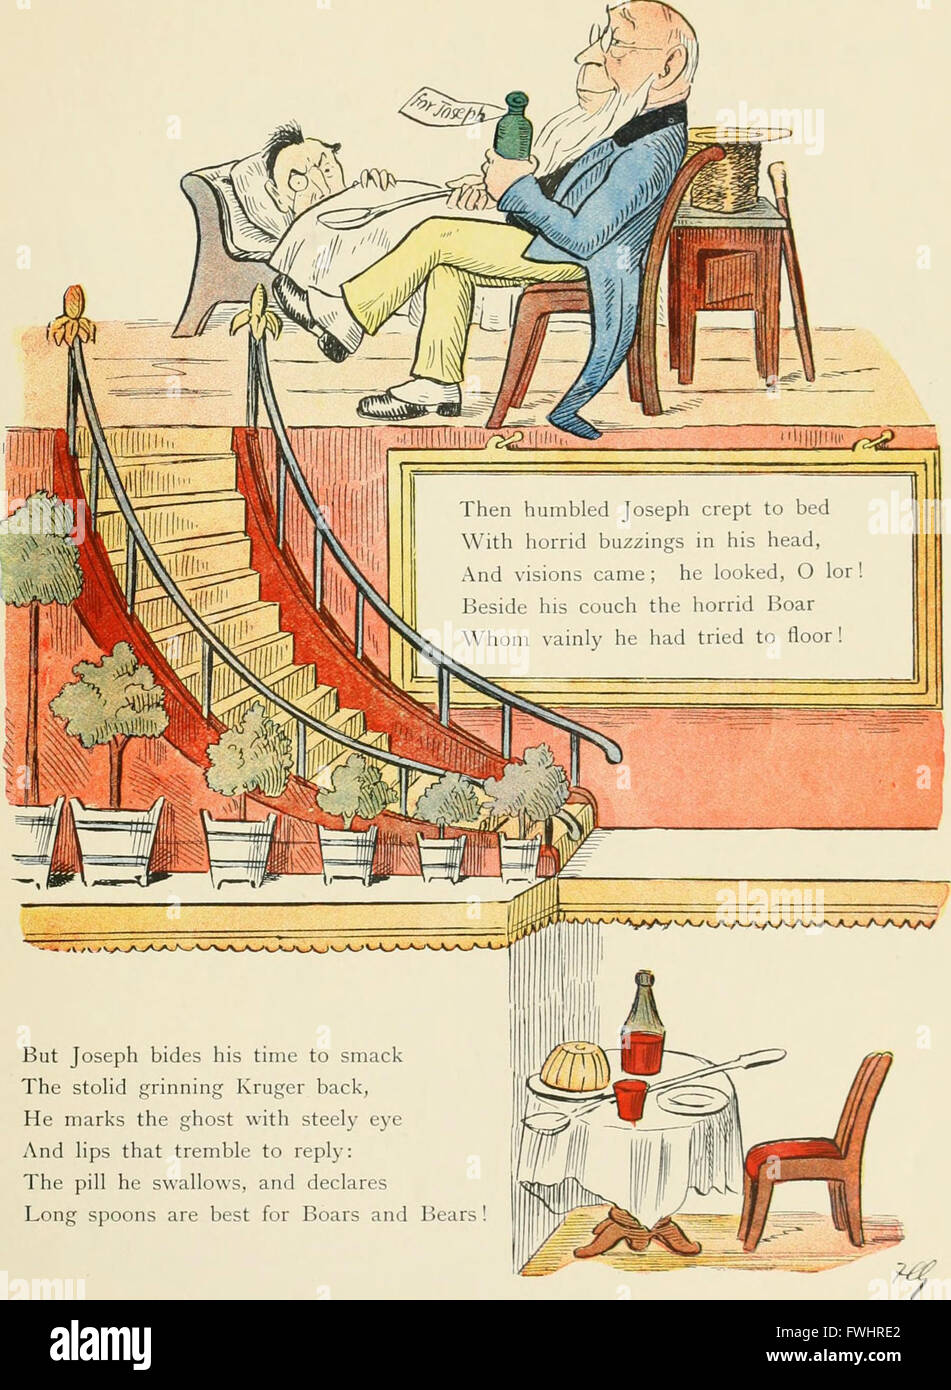 for Joseph
Then humbled Joseph crept to bed
With horrid buzzings in his head,
And visions came; he looked, O lor!
Beside his couch the horrid Boar
Whom vainly he had tried to floor!
But Joseph bides his time to smack
The stolid grinning Kruger back,
He marks the ghost with steely eye
And lips that tremble to reply:
The pill he swallows, and declares
Long spoons are best for Boars and Bears!
alamy
a
alamy stock photo
Image ID: FWHRE2
www.alamy.com